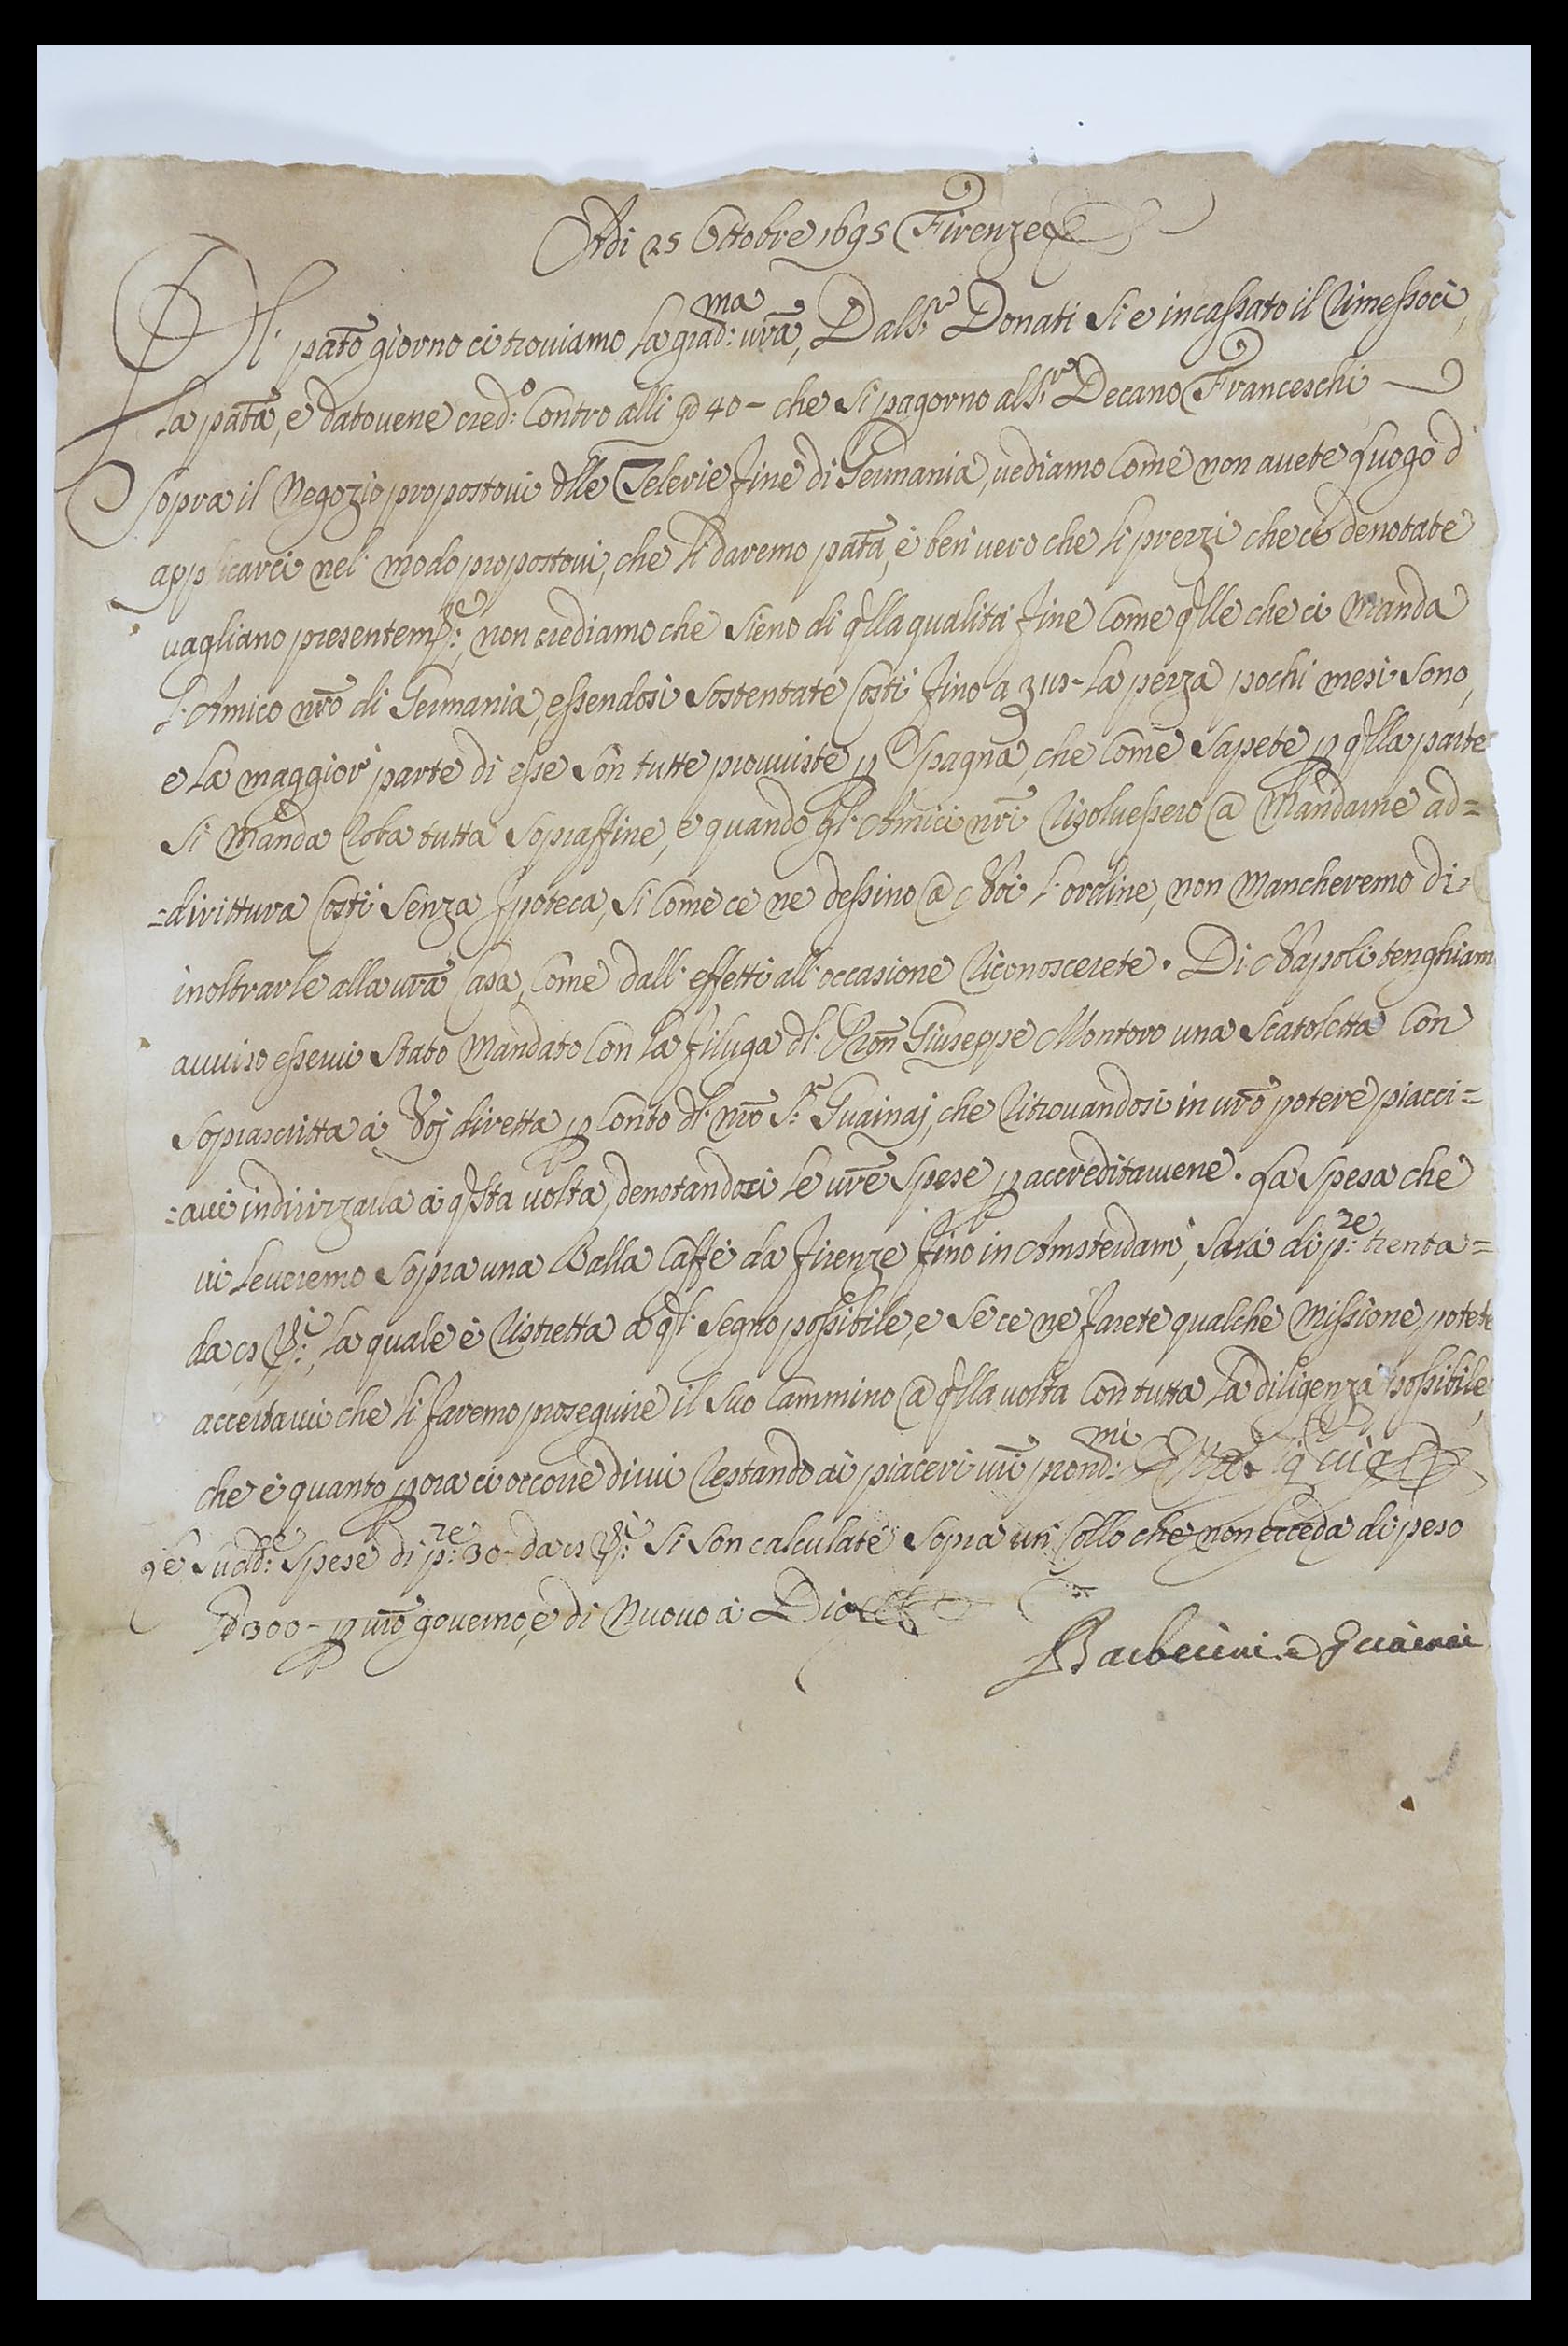 Adi 25 Ottobre 1695 Firenze
Al pato giorno ci trouiamo la grad:ma vra, Dall Sr Donati si e incassato il rimessoci
la pata, e datouene cred:o contro alli 40 - che si pagorno al Sr Decano Franceschi
sopra il Negozio propostoui dlle Telerie fine di Germania, uediamo come non auete luogo d
applicarci nel modo propostoui, che li daremo pata, è ben uero che li prezzi che ci denotate
uagliano presentemte:, non crediamo che sieno di qlla qualità fine come qlle che ci manda
l'Amico nro di Germania, essendosi sostentate costi fino a la pezza pochi mesi sono,
e la maggior parte di esse son tutte prouuiste p Spagna, che come sapete p qlla parte
si manda roba tutta sopraffine, e quando gl'Amici nri risoluessero @ mandarne ad=
=dirittura costi senza Ipoteca, si come ce ne dessino @ Noi l'ordine, non mancheremo di
inoltrarle alla vra Casa, come dall'effetti all'occasione riconoscerete. Di Napoli tenghiam
auuiso esserui stato mandato con la filuga dl Pron Giuseppe Montoro una scatoletta con
soprascritta à Voj diretta p conto dl nro Sr: Guainaj, che ritrouandosi in vro potere piacci=
=aui indirizzarla à qsta uolta, denotandoci le vre spese p accreditaruene. La spesa che
ui leueremo sopra una Balla Caffè da Firenze fino in Amsterdam, sarà di p:ze trenta=
da la quale è ristretta a ql segno possibile, e se ce ne farete qualche missione, potete
accertarui che li faremo proseguire il suo cammino @ qlla uolta con tutta la diligenza possibile,
che è quanto p ora ci occorre dirui restando ai piaceri vri prond:mi
Le sudd:e spese di p:ze 30 - da si son calculate sopra un collo che non ecceda di peso
300 - p vro gouerno, e di nuouo à Dio
Barberini e Guainai